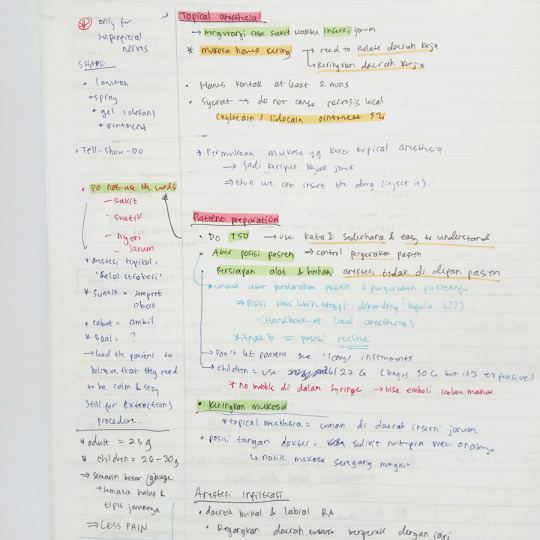 only for
superficial
nerves
SHAPE
• larutan
• spray
• gel (olesan)
• ointment
- Tell-show-do
• Do not use the words
- sakit
- suntik
- nyeri
- jarum
* anestesi topikal =
"selai stroberi"
* suntik = semprot
obat
* cabut = ambil
* Goal = ?
→ lead the patient to
believe that they need
to be calm & stay
still for (extraction)
procedure.
* adult = 25g
* children = 26-30g
→ semakin besar (gauge
→ semakin halus &
tipis jarumnya
⇒ LESS PAIN
Topical anesthesia
→ mengurangi rasa sakit waktu insersi jarum
* mukosa harus kering → need to isolate daerah kerja
→ keringkan daerah kerja
• Harus kontak at least 2 mins
• Syarat → do not cause necrosis local
(xylocain / lidocain ointment 5%)
* Permukaan mukosa yg kena topical anesthesia
→ jadi keriput kayak jeruk
→ then we can insert the thing (inject it)
Patient preparation
• Do TSD → use kata2 sederhana & easy to understand
• Atur posisi pasien → control pergerakan pasien
• Persiapan alat & bahan anestesi tidak di depan pasien
→ untuk atur pendarahan pasien & pergerakan pasiennya
⇒ posisi kaki lebih tinggi dibanding kepala (??)
(Handbook of local anesthesia)
* Anak2 = posisi recline
→ Don't let patients see "scary" instruments
→ children = use 27 G (bagus 30 G but it's expensive)
* no bubble di dalam syringe → bisa emboli kalau masuk
• keringkan mukosa
* topical anesthesia = cuman di daerah insersi jarum
• posisi tangan dokter, sedikit nutupin view anaknya
↳ narik mukosa seregang mungkin
Anestesi infiltrasi
• daerah bukal & labial RA
• Regangkan daerah mukosa bergerak dengan jari